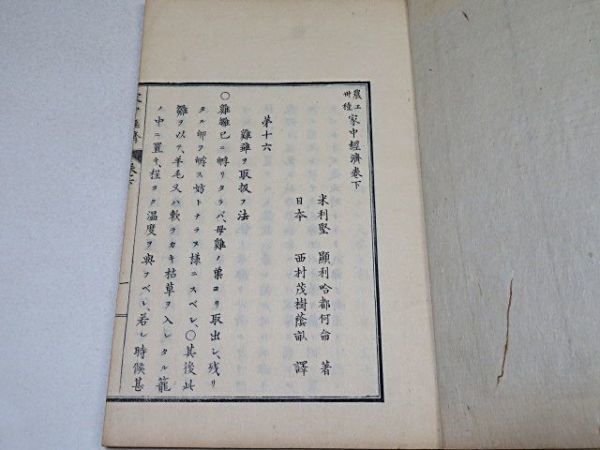 農工卅種 家中經濟卷下
米利堅 顯利哈都何侖 著
日本 西村茂樹蔭畝 譯
第十六
雞雛ヲ取扱フ法
〇雞雛已ニ孵リタラバ、母雞ノ巢ヨリ取出シ、殘リ
タル卵ヲ孵ス妨トナラヌ樣ニスベシ、〇其後此
雛ヲ以テ、羊毛又ハ軟ラカキ枯草ヲ入レタル籠
ノ中ニ置キ、程ヨク溫度ヲ與フベシ、若シ時候甚